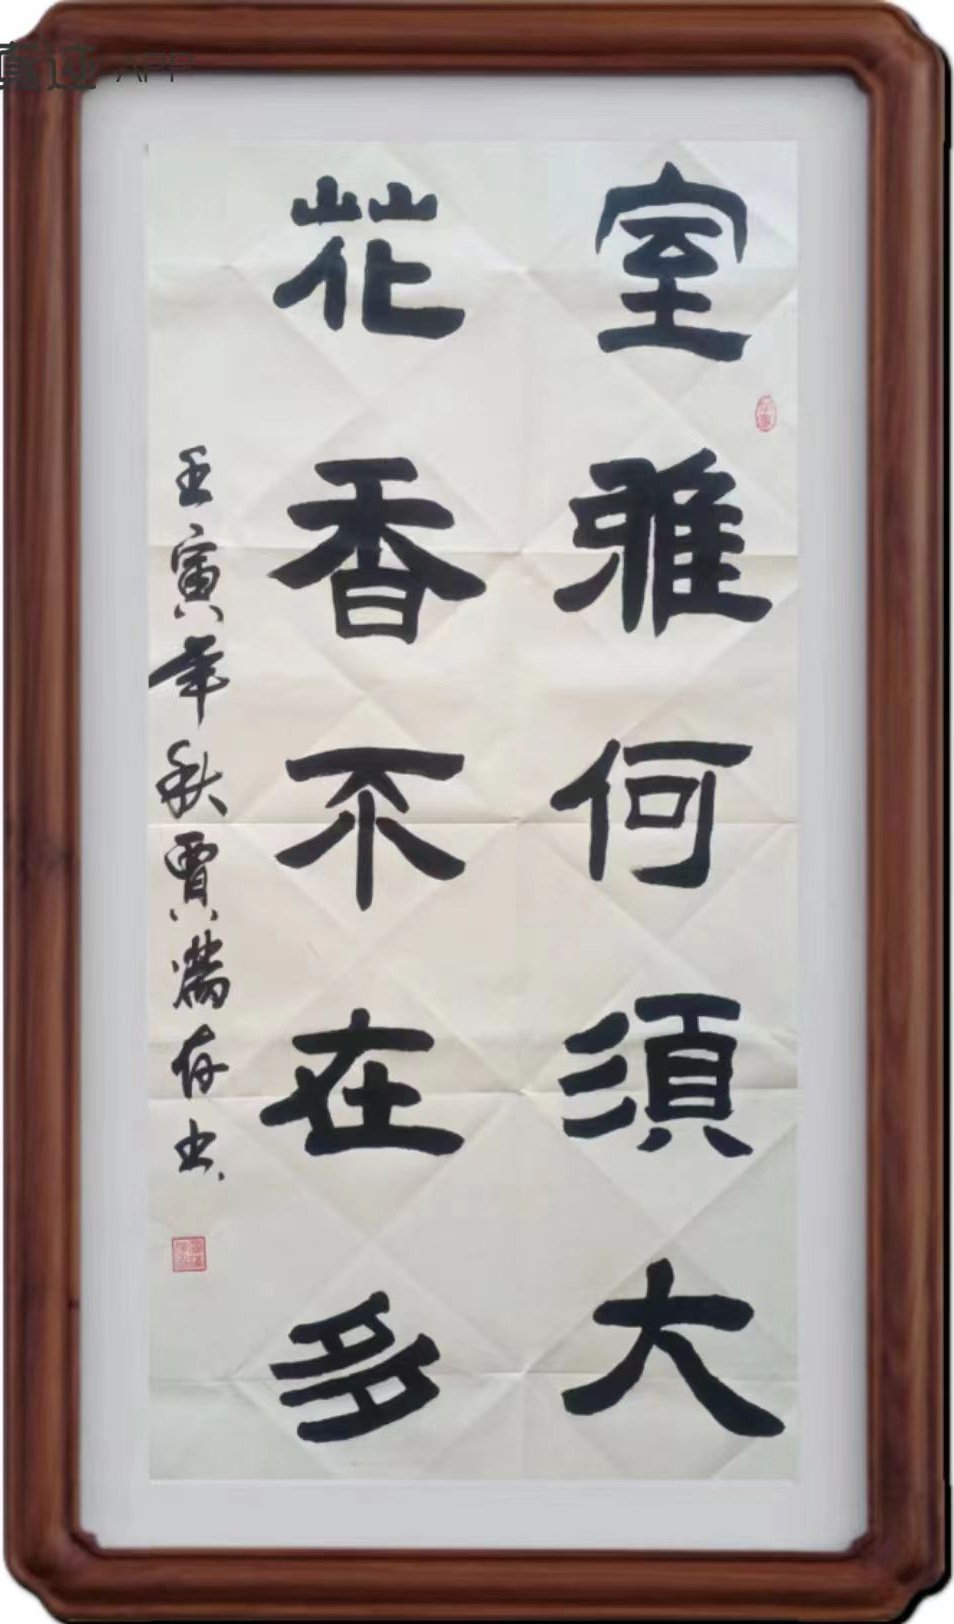 室雅何須大
花香不在多
壬寅年秋賈滿存书
真迹 APP